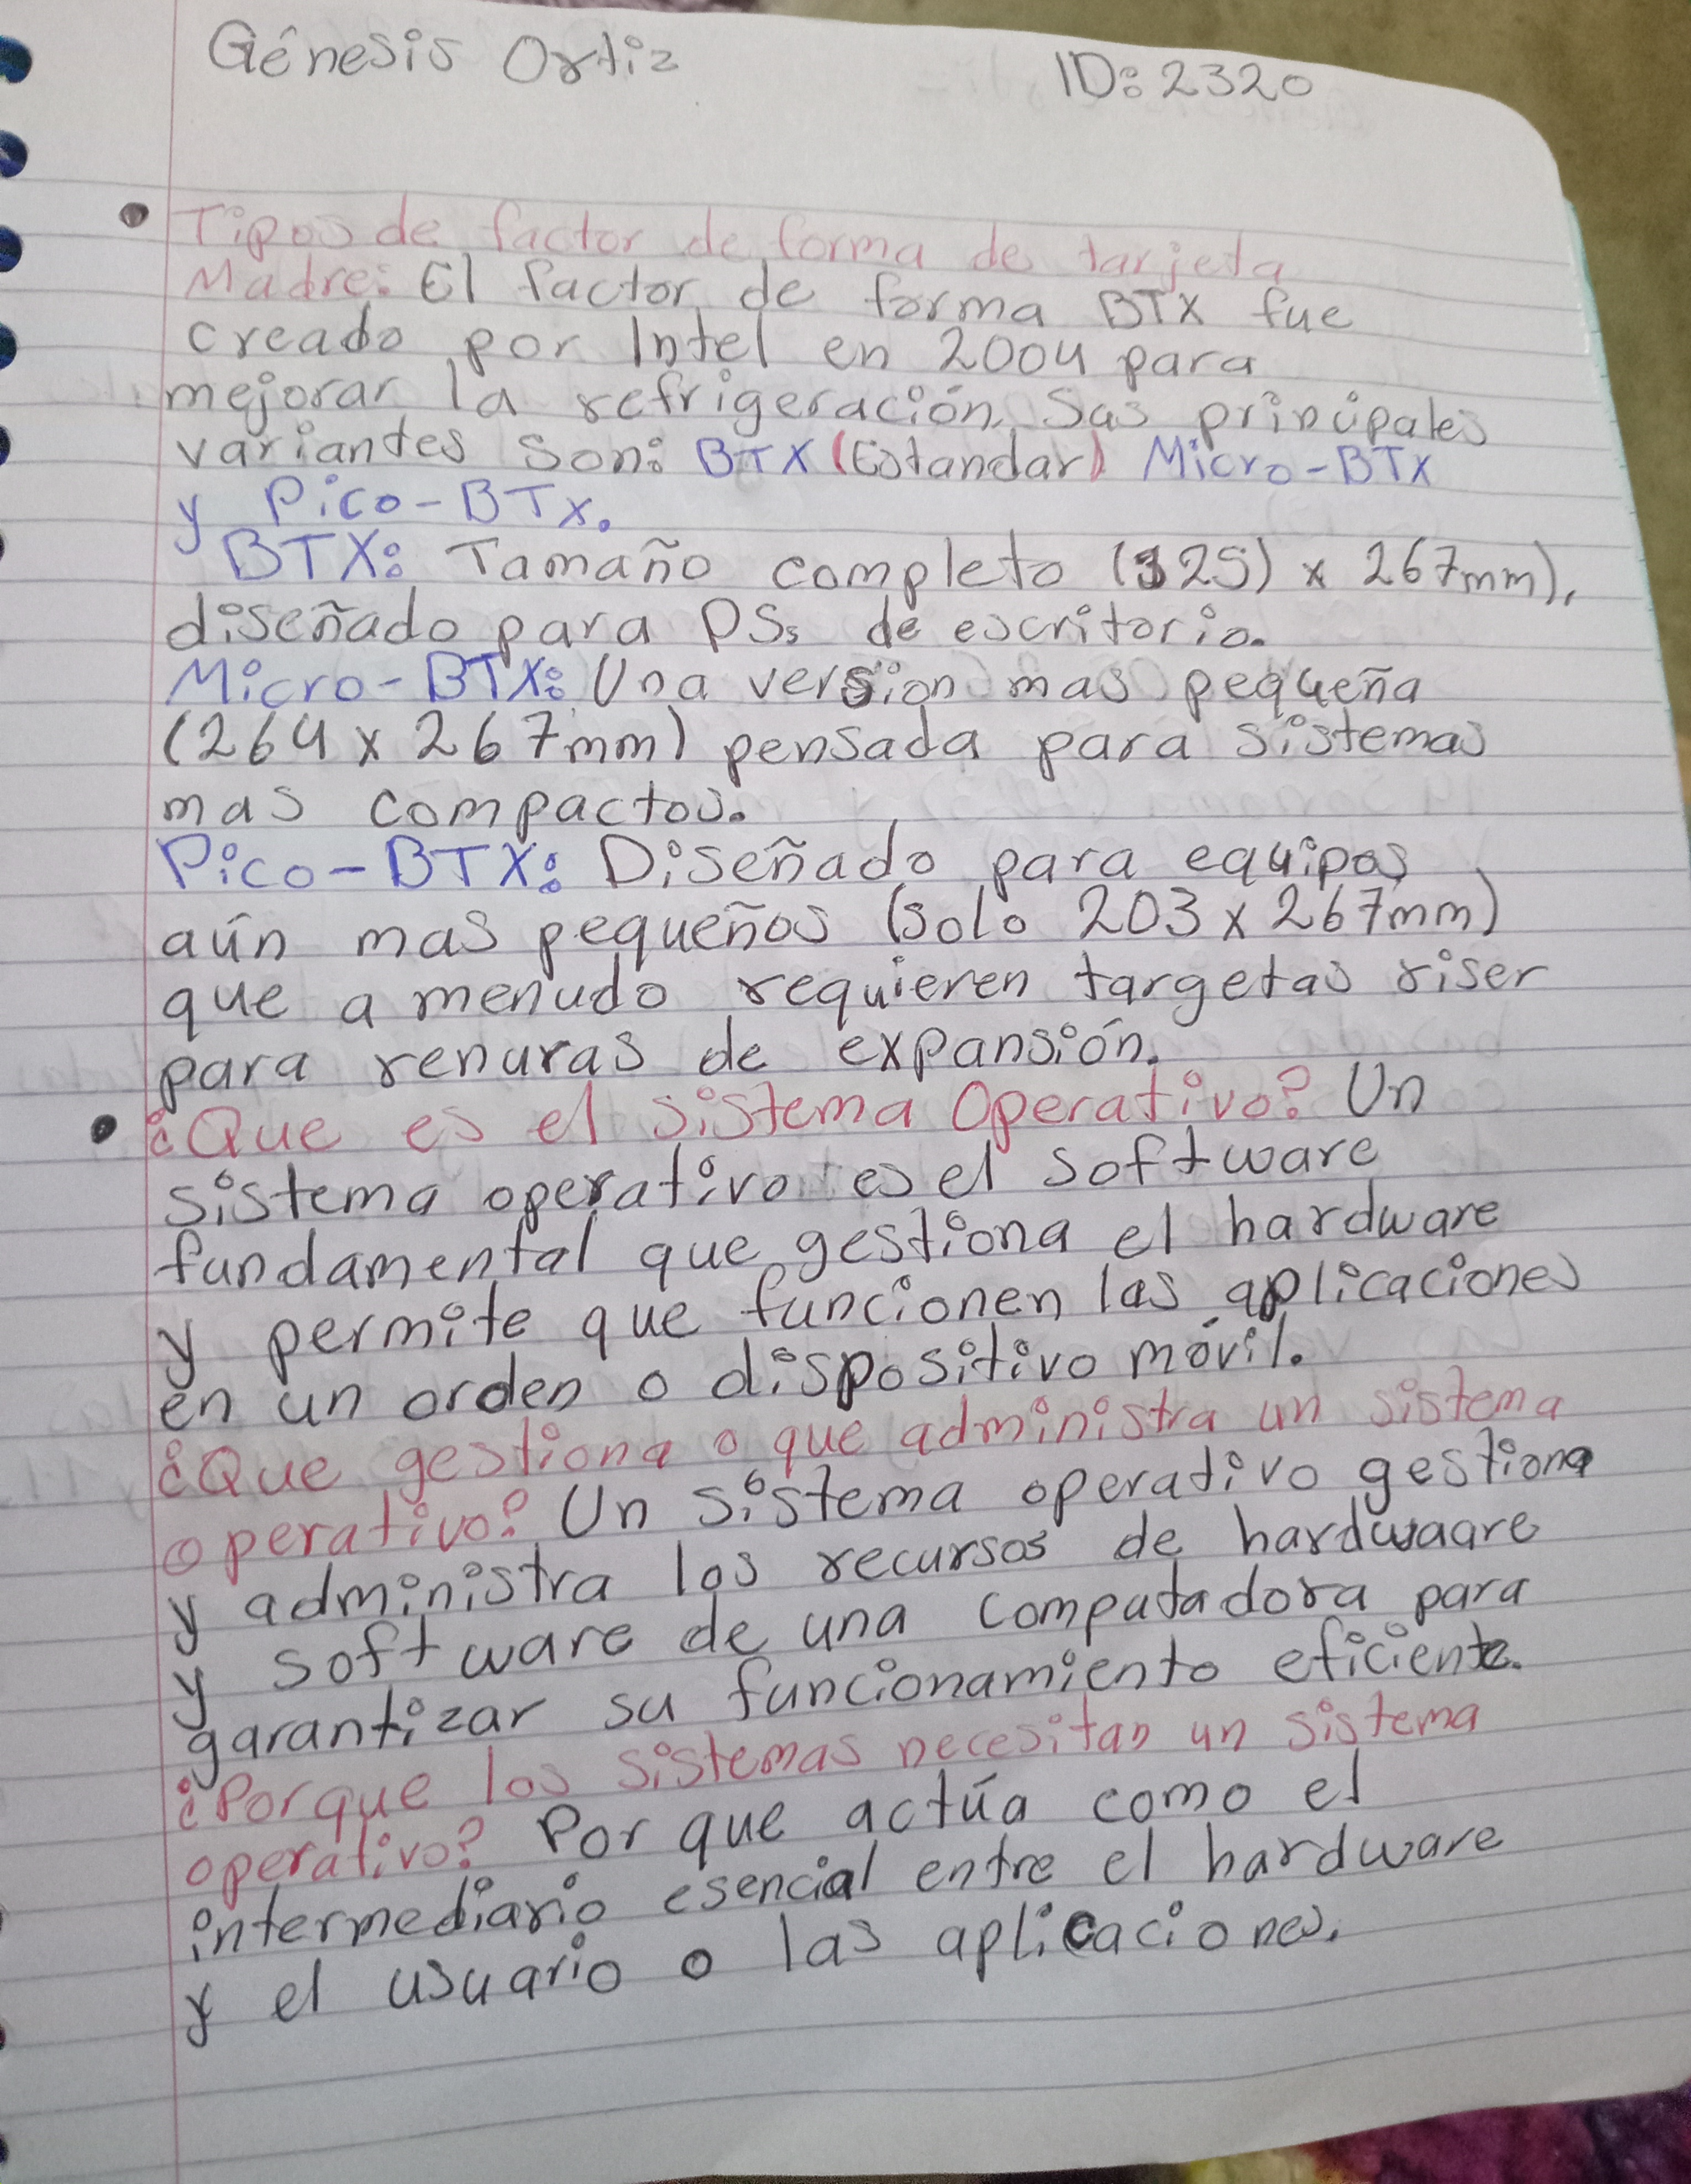 Génesis Ortiz
ID: 2320
Tipos de factor de forma de tarjeta
Madre: El factor de forma BTX fue
creado por Intel en 2004 para
mejorar la refrigeración. Sus principales
variantes son: BTX (Estandar) Micro-BTX
y Pico-BTX.
BTX: Tamaño completo (325) x 267mm),
diseñado para PSs de escritorio.
Micro-BTX: Una version mas pequeña
(264 x 267mm) pensada para sistemas
mas compactos.
Pico-BTX: Diseñado para equipos
aún mas pequeños (solo 203 x 267mm)
que a menudo requieren targetas riser
para renuras de expansión.
¿Que es el sistema Operativo? Un
sistema operativo es el software
fundamental que gestiona el hardware
y permite que funcionen las aplicaciones
en un orden o dispositivo móvil.
¿Que gestiona o que administra un sistema
operativo? Un sistema operativo gestiona
y administra los recursos de hardwaare
y software de una computadora para
garantizar su funcionamiento eficiente.
¿Porque los sistemas necesitan un sistema
operativo? Por que actúa como el
intermediario esencial entre el hardware
y el usuario o las aplicaciones.